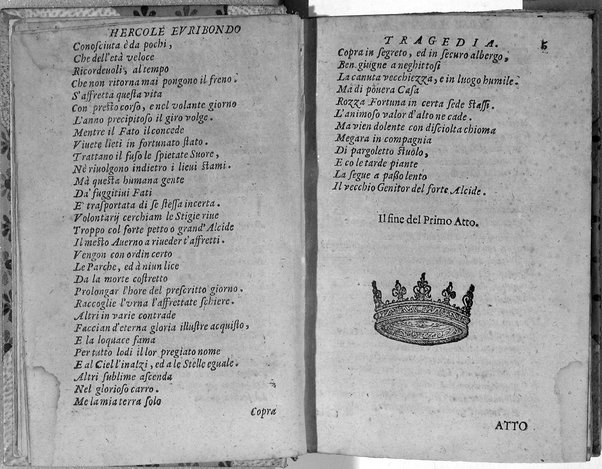 HERCOLE EVRIBONDO
Conosciuta è da pochi,
Che dell'età veloce
Ricordeuoli, al tempo
Che non ritorna mai pongono il freno.
S'affretta questa vita
Con presto corso, e nel volante giorno
L'anno precipitoso il giro volge.
Mentre il Fato il concede
Viuete lieti in fortunato stato.
Trattano il fuso le spietate Suore,
Nè riuolgono indietro i lieui stami.
Mà questa humana gente
Da' fuggitiui Fati
E' trasportata di se stessa incerta.
Volontarij cerchiam le Stigie riue
Troppo col forte petto o grand' Alcide
Il mesto Auerno a riueder t'affretti.
Vengon con ordin certo
Le Parche, ed à niun lice
Da la morte costretto
Prolongar l'hore del prescritto giorno.
Raccoglie l'vrna l'affrettate schiere.
Altri in varie contrade
Faccian d'eterna gloria illustre acquisto,
E la loquace fama
Per tutto lodi il lor pregiato nome
E al Ciel l'inalzi, ed a le Stelle eguale.
Altri sublime ascenda
Nel glorioso carro.
Me la mia terra solo
Copra
TRAGEDIA. 5
Copra in segreto, ed in securo albergo,
Ben giugne a neghittosi
La canuta vecchiezza, e in luogo humile.
Mà di pòuera Casa
Rozza Fortuna in certa sede stassi.
L'animoso valor d'alto ne cade.
Ma vien dolente con disciolta chioma
Megara in compagnia
Di pargoletto stuolo,
E co le tarde piante
La segue a passo lento
Il vecchio Genitor del forte Alcide.
Il fine del Primo Atto.
ATTO